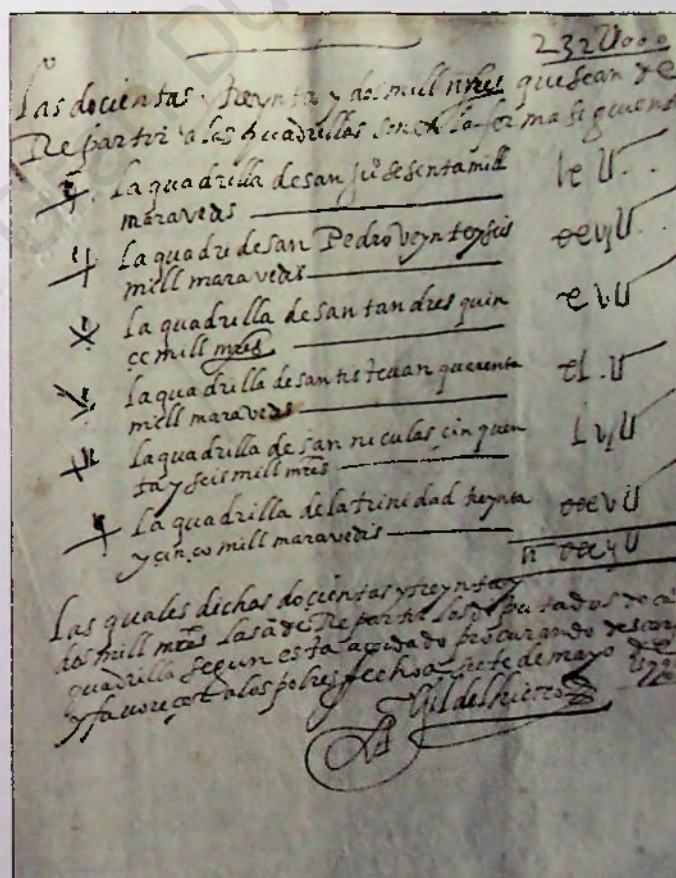 232U000
Las docientas y treynta y dos mill mrs que sean de
Repartir a las quadrillas son en la forma siguiente
La quadrilla de san juº sesenta mill
maravedis lx U
La quadrª de san Pedro veynte y seis
mill maravedis xxvj U
La quadrilla de santandres quin
ce mill mrs xv U
La quadrilla de santisteuan quarenta
mill maravedis xl U
La quadrilla de san niculas cinquen
ta y seis mill mrs lvj U
La quadrilla de la trinidad treynta
y cinco mill maravedis xxxv U
xxxij U
Las quales dichas docientas y treynta y
dos mill mrs las an de Repartir los diputados de ca
quadrilla segun esta acordado procurando descar
y favorecer a los pobres fecho a siete de mayo de
Gil del hierro